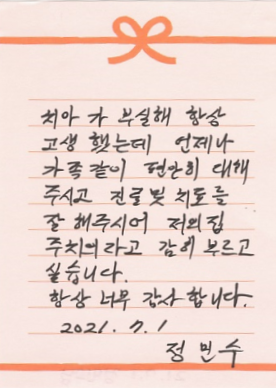 치아 가 부실해 항상
고생 했는데 언제나
가족같이 편안히 대해
주시고 진료및 치료를
잘 해주시어 저의집
주치의라고 감히 부르고
싶습니다.
항상 너무 감사 합니다.
2021. 7. 1
정 민 수